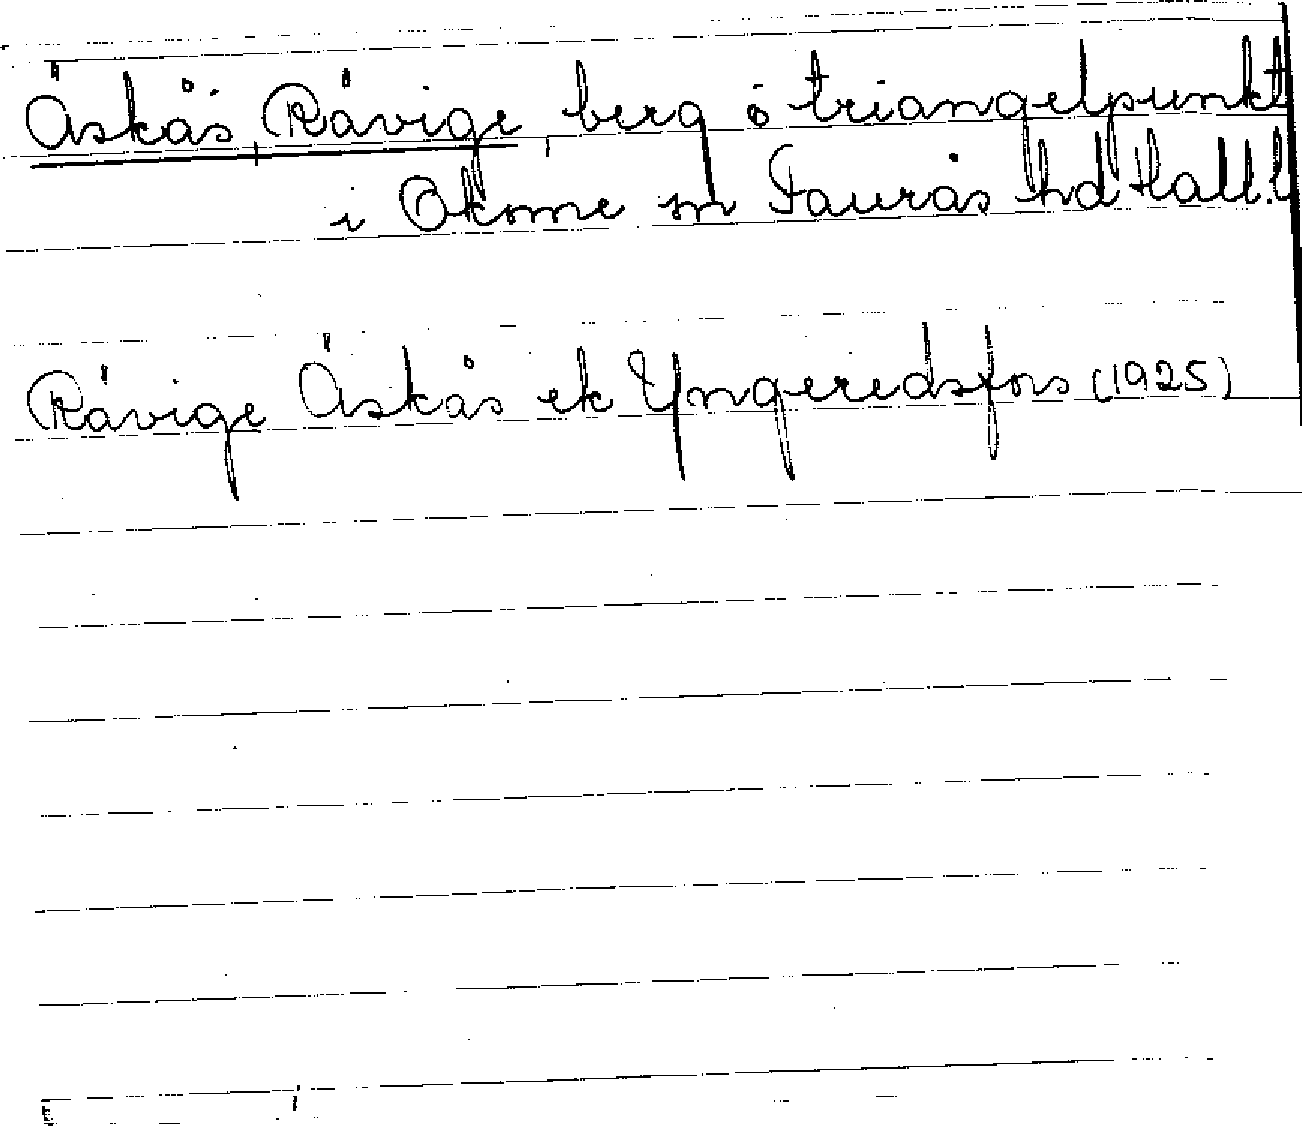 Äskås Rävige, berg ö triangelpunkt
i Okome sn Faurås hd Hall. l
Rävige Äskås ek Yngeredsfors (1925)